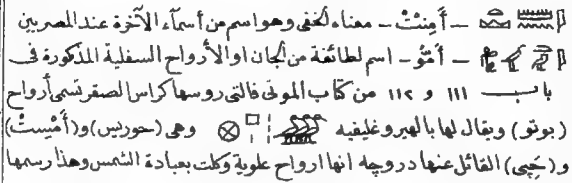 – أَمِنْتْ – معناه الخفى وهو اسم من أسمآء الآخرة عند المصريين
– أَمُّو – اسم لطائفة من الجان او الأرواح السفلية المذكورة فى
باب ١١١ و ١١٢ من كتاب الموتى فالتى روسها كراس الصقر تسمى أرواح
(بوتو) ويقال لها بالهيروغليفيه وهى (حورنيس) و(أَمْسِتْ)
و(حَپِى) القائل عنها دروچه انها ارواح علوية وكلت بعبادة الشمس وهذا رسمها